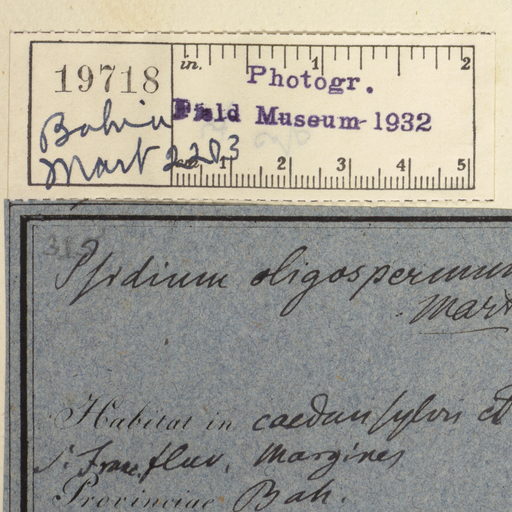 19718
in. 1 2
Photogr.
Field Museum 1932
Bahia
Mart 2203
1 2 3 4 5
Psidium oligospermum
Mart
Habitat in caeduis sylvis et
fluv. margines
Provinciae Bah.